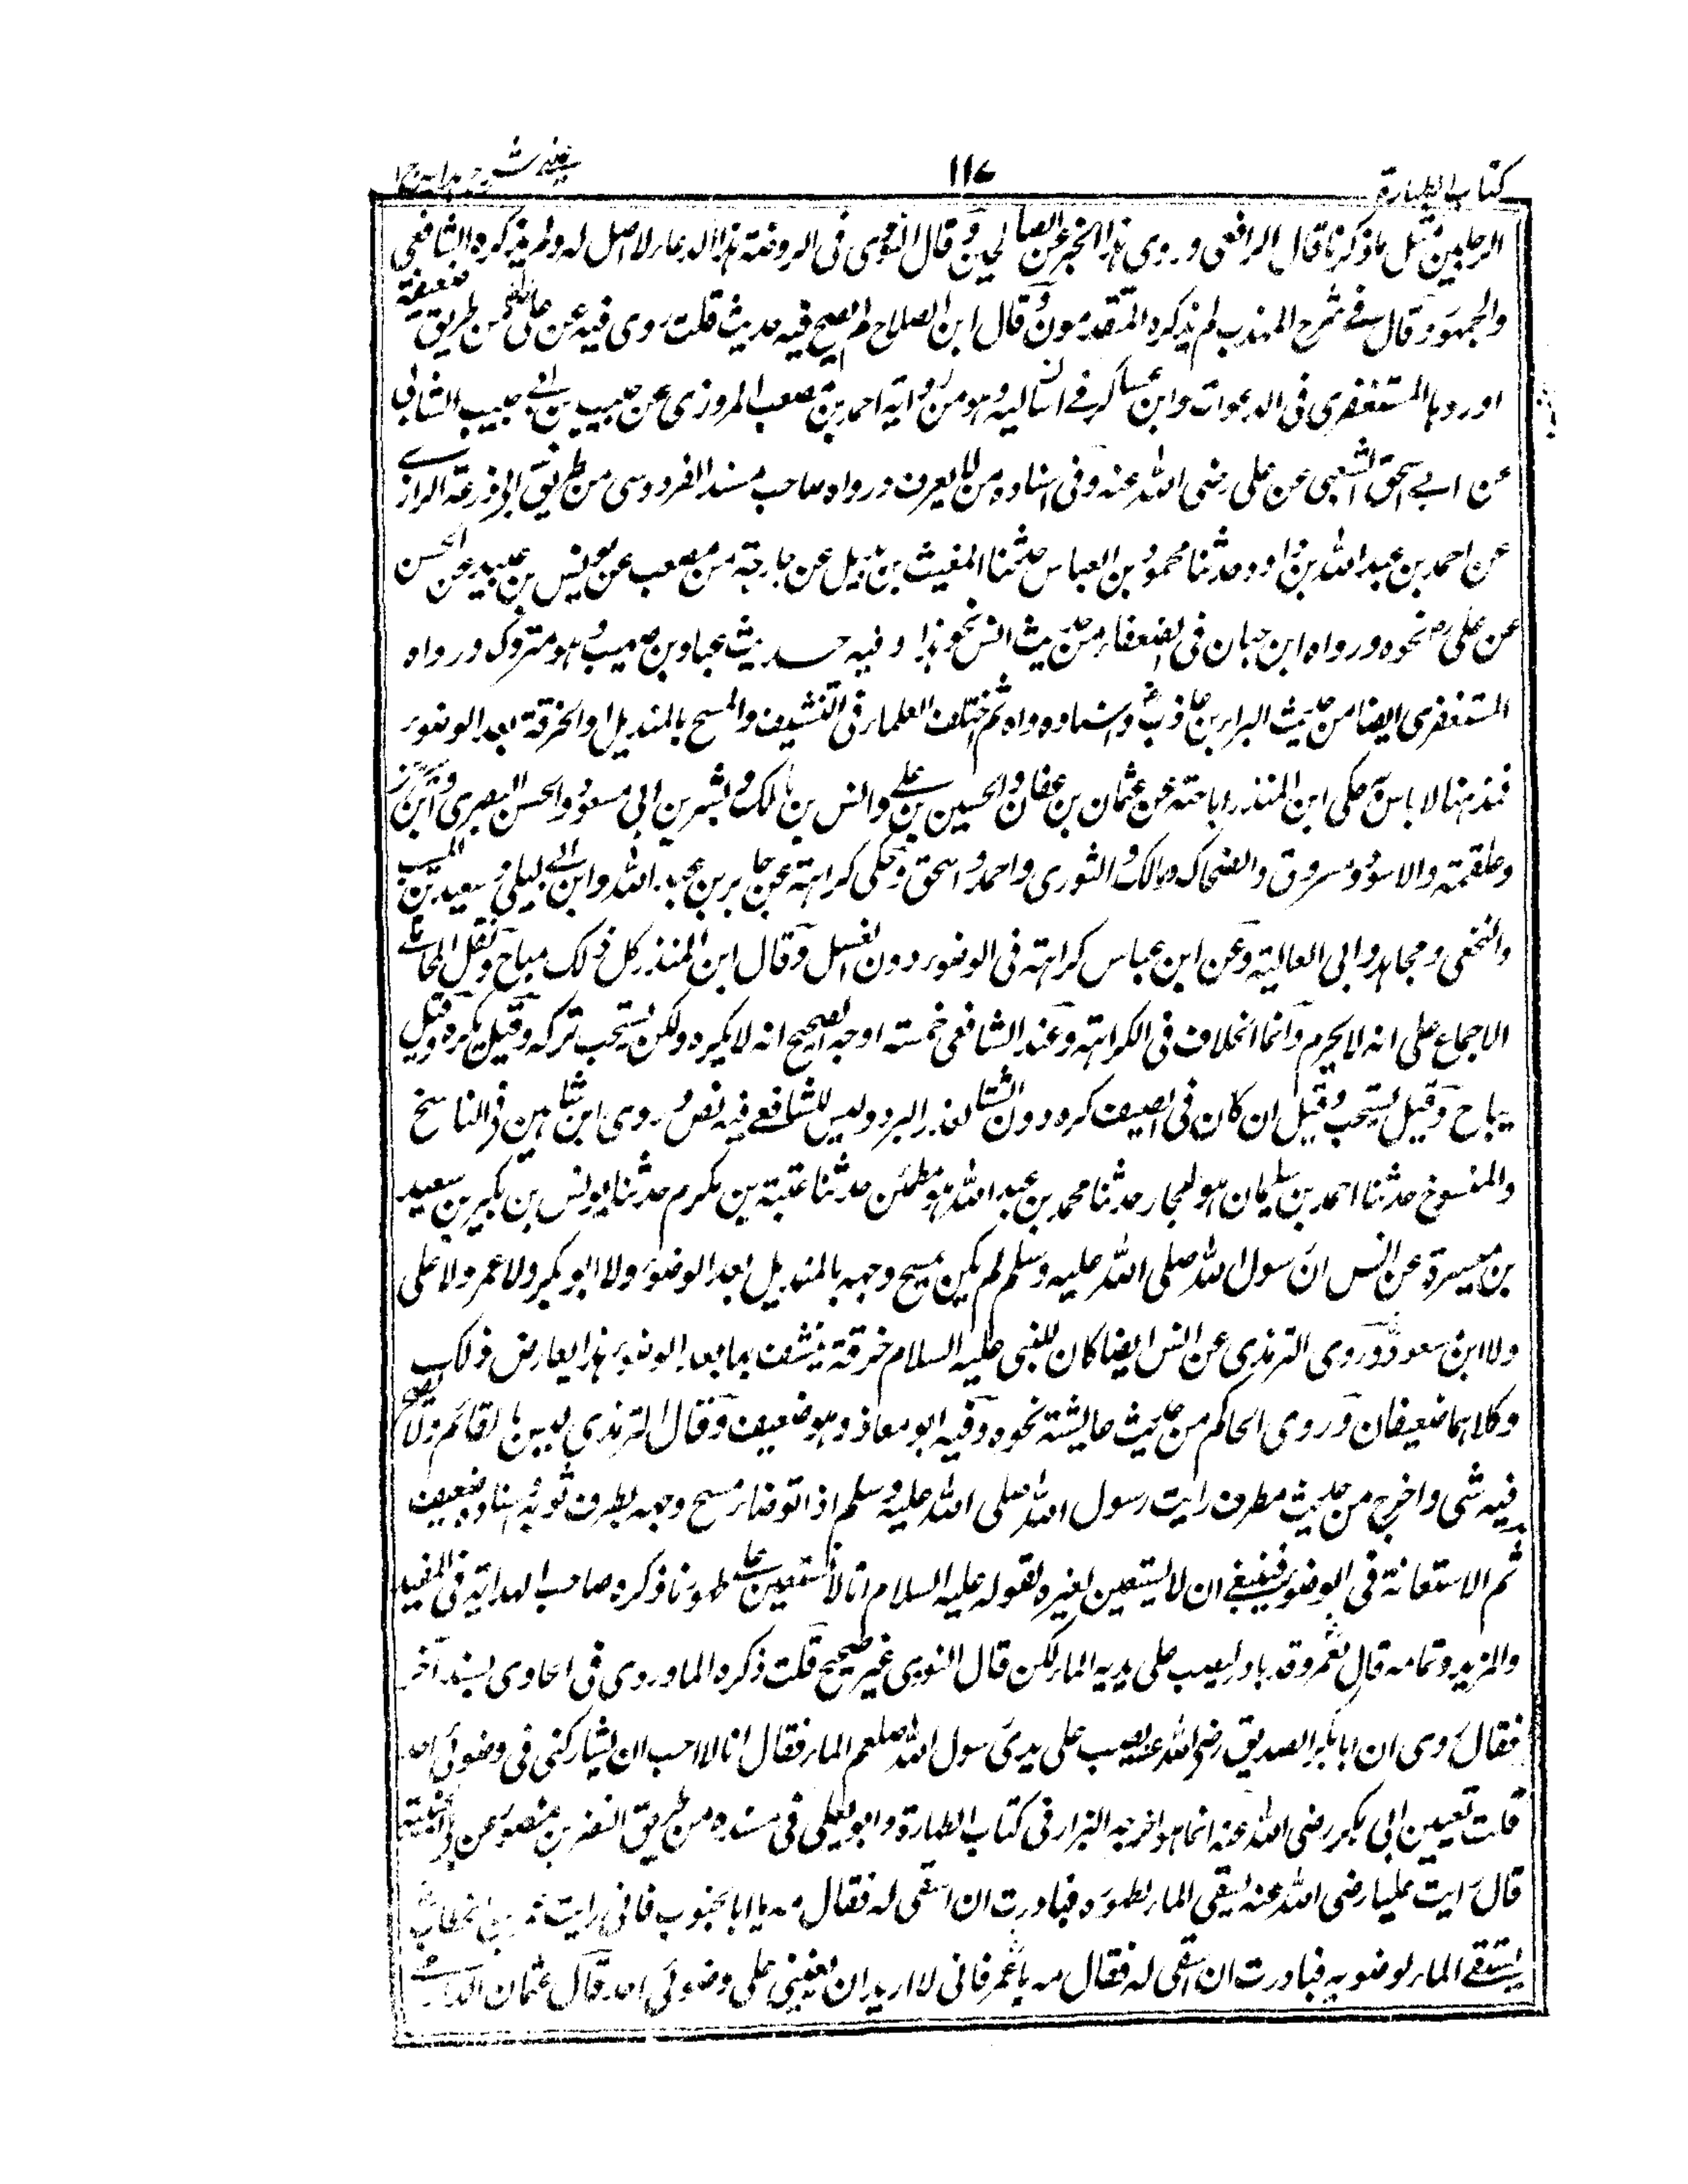 كتاب الطهارة
١١٧
عينى شرح هداية ج١
الرجلين مثل ما ذكرنا قال الرافعى وروى هذا الخبر عن الصالحين وقال النووى فى الروضة هذا الدعاء لا اصل له ولم يذكره الشافعى
والجمهور وقال فى شرح المهذب لم يذكره المتقدمون وقال ابن الصلاح لم يصح فيه حديث قلت روى فيه عن على من طريق ضعيفة
اوردها المستغفرى فى الدعوات وابن عساكر فى اماليه وهو من رواية احمد بن مصعب المروزى عن حبيب بن ابى حبيب الشابى
عن ابى اسحق الشعبى عن على رضى الله عنه وفى اسناده من لا يعرف ورواه صاحب مسند الفردوسى من طريق ابى زرعة الرازى
عن احمد بن عبد الله بن داود حدثنا محمود بن العباس حدثنا المغيث بن بديل عن خارجة بن مصعب عن يونس بن عبيد عن الحسن
عن على نحوه ورواه ابن حبان فى الضعفاء من حديث انس نحو هذا وفيه حديث عباد بن صهيب وهو متروك ورواه
المستغفرى ايضا من حديث البراء بن عازب واسناده واه ثم اختلف العلماء فى التنشيف والمسح بالمنديل او الخرقة بعد الوضوء
فمذهبنا لا باس به حكى ابن المنذر اباحته عن عثمان بن عفان والحسين بن على وانس بن مالك وبشر بن ابى مسعود والحسن البصرى وابن سيرين
وعلقمة والاسود ومسروق والضحاك ومالك والثورى واحمد واسحق وحكى كراهته عن جابر بن عبد الله وابن ابى ليلى وسعيد بن المسيب
والنخعى ومجاهد وابى العالية وعن ابن عباس كراهته فى الوضوء دون الغسل وقال ابن المنذر كل ذلك مباح ونقل المحاملى
الاجماع على انه لا يحرم وانما الخلاف فى الكراهة وعند الشافعى خمسة اوجه الصحيح انه لا يكره ولكن يستحب تركه وقيل يكره وقيل
يباح وقيل يستحب وقيل ان كان فى الصيف كره دون الشتاء لعذر البرد وليس للشافعى فيه نص وروى ابن شاهين فى الناسخ
والمنسوخ حدثنا احمد بن سليمان هو النجار حدثنا محمد بن عبد الله هو مطين حدثنا عتبة بن مكرم حدثنا يونس بن بكير بن سعيد
بن ميسرة عن انس ان رسول الله صلى الله عليه وسلم لم يكن يمسح وجهه بالمنديل بعد الوضوء ولا ابو بكر ولا عمر ولا على
ولا ابن مسعود وروى الترمذى عن انس ايضا كان للنبى عليه السلام خرقة ينشف بها بعد الوضوء هذا يعارض ذلك
وكلاهما ضعيفان وروى الحاكم من حديث عايشة نحوه وفيه ابو معاذ وهو ضعيف وقال الترمذى ليس بالقائم ولا يصح
فيه شى واخرج من حديث مطرف رايت رسول الله صلى الله عليه وسلم اذا توضا مسح وجهه بطرف ثوبه واسناده ضعيف
ثم الاستعانة فى الوضوء فينبغى ان لا يستعين بغيره لقوله عليه السلام انا لا نستعين على طهورنا ذكره صاحب الهداية فى المفيد
والمزيد وتمامه قال لعمر وقد بادر ليصب على يديه الماء لكن قال النووى غير صحيح قلت ذكره الماوردى فى الحاوى بسند آخر
فقال روى ان ابا بكر الصديق رضى الله عنه ليصب على يدى رسول الله صلعم الماء فقال انا لا احب ان يشاركنى فى وضوئى احد
قلت تعيين ابى بكر رضى الله عنه انما هو اخرجه البزار فى كتاب الطهارة وابو يعلى فى مسنده من طريق النضر بن منصور عن
قال رايت عليا رضى الله عنه يستقى الماء لطهوره فبادرت ان استقى له فقال مه يا ابا الجنوب فانى رايت عمر بن الخطاب
يستقى الماء لوضوءه فبادرت ان استقى له فقال مه يا عمر فانى لا اريد ان يعيننى على وضوئى احد قال عثمان